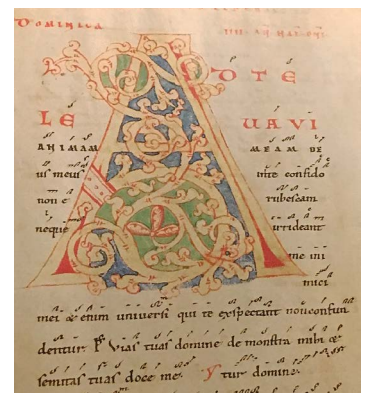 Dominica
A D TE
LE UAVI
ANIMAM MEAM DE
us meus inte confido
non e rubescam
neque irrideant
me ini
mici
mei & enim universi qui te exspectant nonconfun
dentur. Vias tuas domine demonstra mihi &
semitas tuas doce me. tur domine.